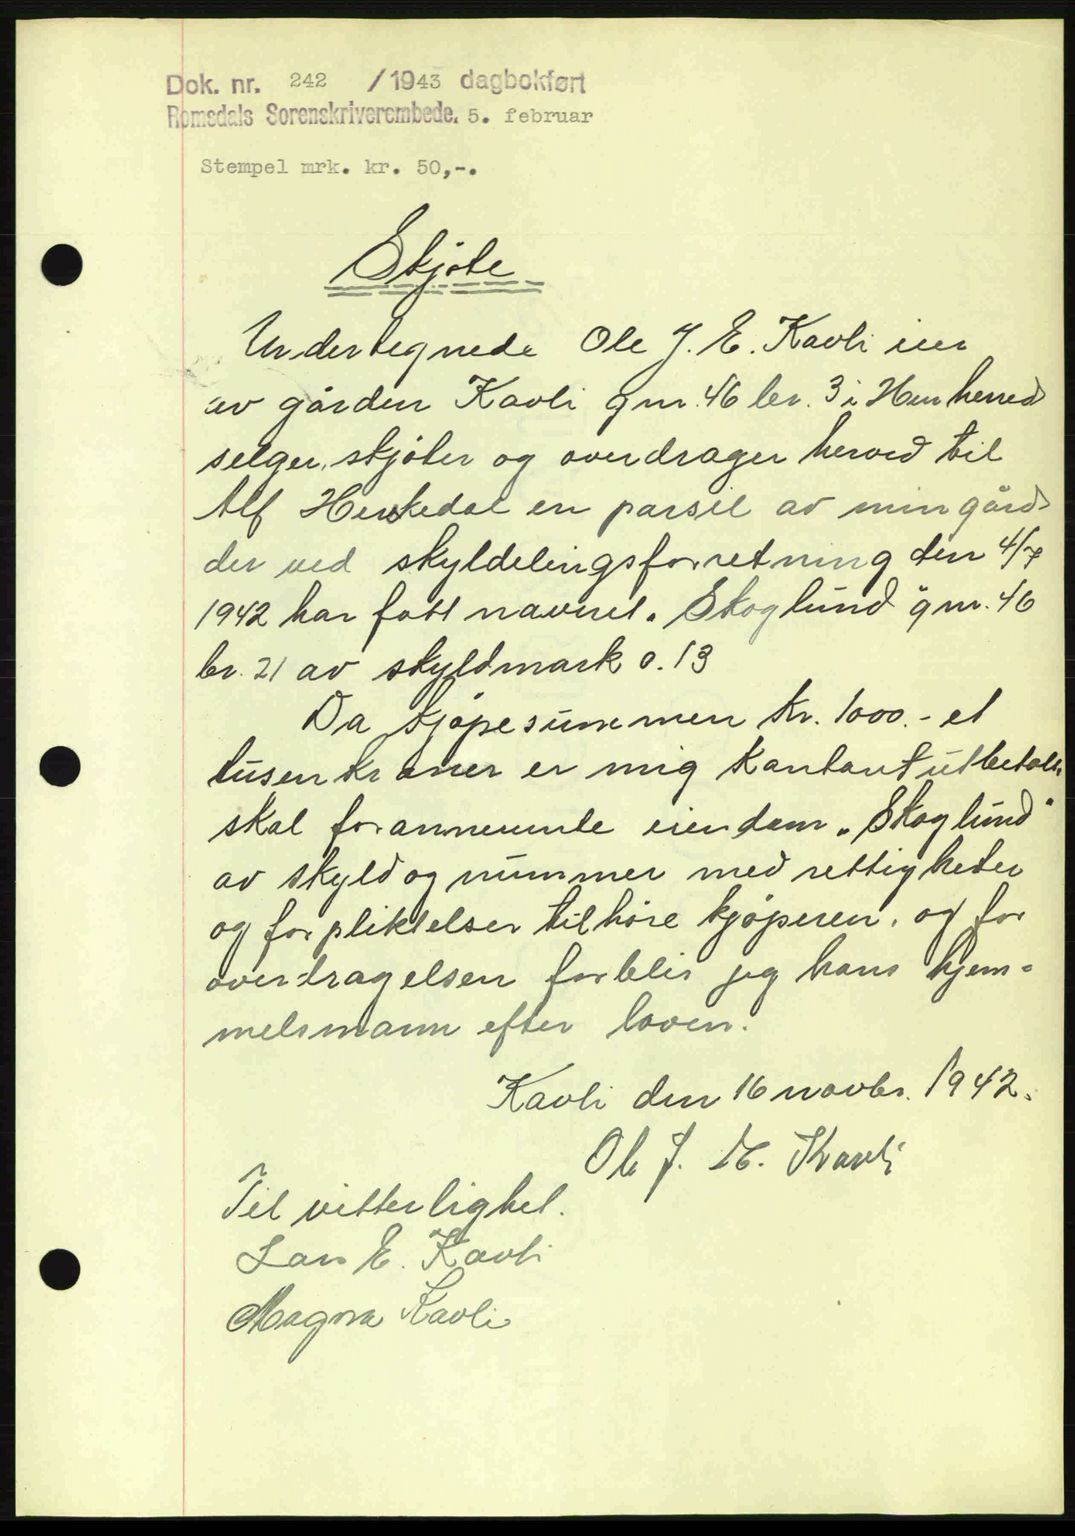 Dok. nr. 242 /1943 dagbokført
Romsdals Sorenskriverembede. 5. februar
Stempel mrk. kr. 50,-.
Skjøte
Undertegnede Ole J. E. Kavli eier
av gården Kavli gnr. 46 br. 3 i Hen herred
selger, skjøter og overdrager herved til
Alf Henkedal en parsel av min gård
der ved skyldelingsforretning den 4/7
1942 har fått navnet „Skoglund" gnr. 46
br. 21 av skyldmark 0.13
Da kjøpesummen kr. 1000.- et
tusen kroner er mig kontant utbetalt
skal forannevnte eiendom „Skoglund"
av skyld og nummer med rettigheter
og forpliktelser tilhøre kjøperen, og for
overdragelsen forblir jeg hans hjem-
melsmann efter loven.
Kavli den 16 novbr. 1942.
Ole J. E. Kavli
Til vitterlighet.
Lars E. Kavli
Magna Kavli